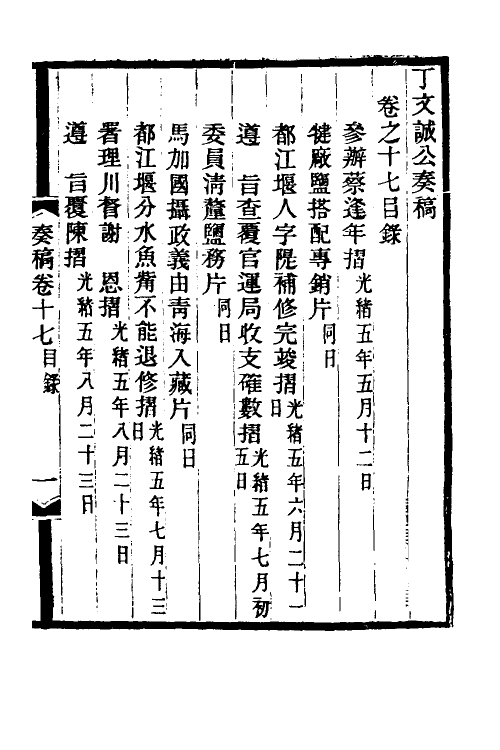 丁文誠公奏稿
卷之十七目錄
參辦蔡逢年摺光緒五年五月十二日
犍廠鹽搭配專銷片同日
都江堰人字隄補修完竣摺光緒五年六月二十一日
遵 旨查覆官運局收支確數摺光緒五年七月初五日
委員清釐鹽務片同日
馬加國攝政義由青海入藏片同日
都江堰分水魚嘴不能退修摺光緒五年七月十三日
署理川督謝 恩摺光緒五年八月二十三日
遵 旨覆陳摺光緒五年八月二十三日
奏稿卷十七目錄 一